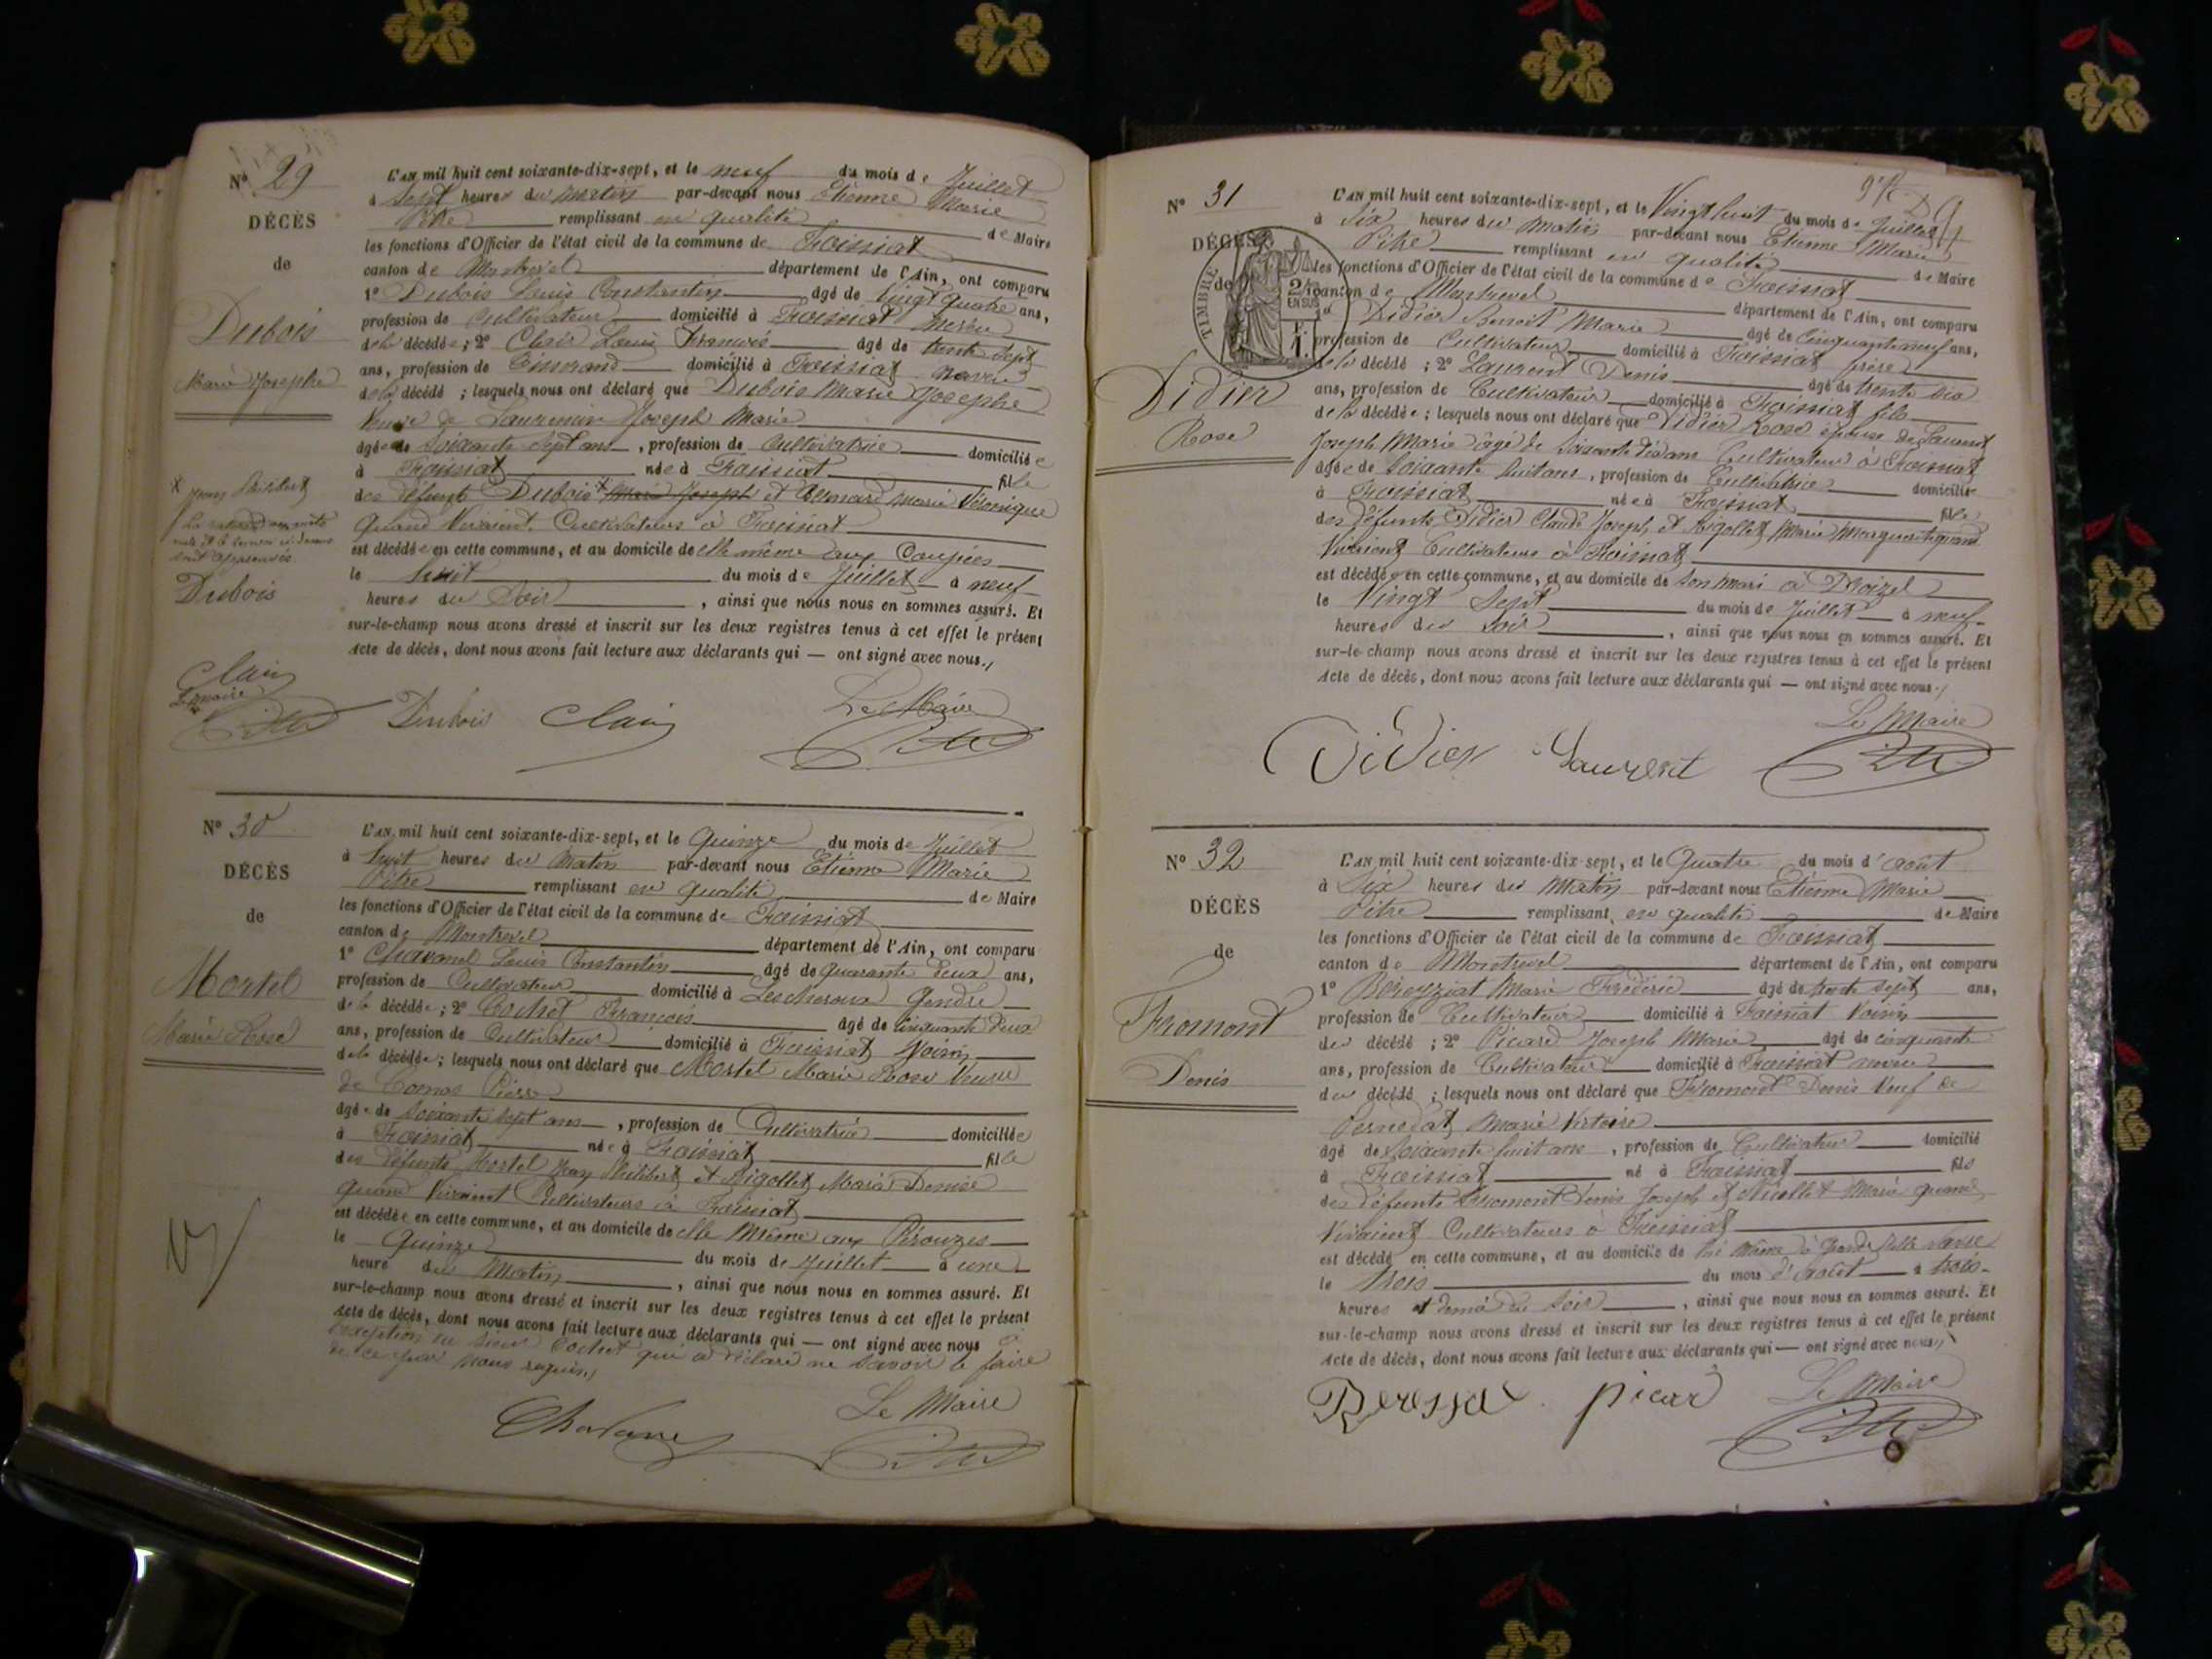 N° 29
DÉCÈS
de
Dubois
Marie Josephe
L'AN mil huit cent soixante-dix-sept, et le neuf du mois de Juillet
à Sept heures du Matin par-devant nous Etienne Marie
Pitre remplissant en qualité de Maire
les fonctions d'Officier de l'état civil de la commune de Foissiat
canton de Montrevel département de l'Ain, ont comparu
1° Dubois Louis Constantin âgé de Vingt quatre ans,
profession de Cultivateur domicilié à Foissiat neveu
de la décédée ; 2° Clair Louis François âgé de trente sept
ans, profession de Tisserand domicilié à Foissiat neveu
de la décédé ; lesquels nous ont déclaré que Dubois Marie Josephe
Veuve de Laurencin Joseph Marie
âgée de Soixante Sept ans , profession de Cultivatrice domiciliée
à Foissiat née à Foissiat fille
des défunts Dubois x Marie Joseph et Bernard Marie Véronique
quand Vivaient Cultivateurs à Foissiat
est décédée en cette commune, et au domicile de elle même aux Coupées
le huit du mois de Juillet à neuf
heures du Soir , ainsi que nous nous en sommes assuré. Et
sur-le-champ nous avons dressé et inscrit sur les deux registres tenus à cet effet le présent
Acte de décès, dont nous avons fait lecture aux déclarants qui — ont signé avec nous
x Jean Philibert
sont approuvés
Dubois
Clair
Le maire
Pitre
Dubois Clair Le Maire
Pitre
N° 30
DÉCÈS
de
Mortel
Marie Rose
L'AN mil huit cent soixante-dix-sept, et le Quinze du mois de Juillet
à huit heures du Matin par-devant nous Etienne Marie
Pitre remplissant en qualité de Maire
les fonctions d'Officier de l'état civil de la commune de Foissiat
canton de Montrevel département de l'Ain, ont comparu
1° Chavanel Louis Constantin âgé de quarante deux ans,
profession de Cultivateur domicilié à Lescheroux Gendre
de la décédée ; 2° Cochet François âgé de Cinquante deux
ans, profession de Cultivateur domicilié à Foissiat Voisin
de la décédée ; lesquels nous ont déclaré que Mortel Marie Rose Veuve
de Comas Pierre
âgée de Soixante sept ans , profession de Cultivatrice domiciliée
à Foissiat née à Foissiat fille
des défunts Mortel Jean Philibert et Rigollet Marie Denise
quand Vivaient Cultivateurs à Foissiat
est décédée en cette commune, et au domicile de elle Même aux Pérouzes
le Quinze du mois de Juillet à une
heure du Matin , ainsi que nous nous en sommes assuré. Et
sur-le-champ nous avons dressé et inscrit sur les deux registres tenus à cet effet le présent
Acte de décès, dont nous avons fait lecture aux déclarants qui — ont signé avec nous à
l'exception du sieur Cochet qui a déclaré ne savoir le faire
de ce par nous requis
Chavanel Le Maire
Pitre
N° 31
DÉCÈS
de
Didier
Rose
TIMBRE
2/10
EN SUS
L'AN mil huit cent soixante-dix-sept, et le Vingt huit du mois de Juillet
à Six heures du Matin par-devant nous Etienne Marie
Pitre remplissant en qualité de Maire
les fonctions d'Officier de l'état civil de la commune de Foissiat
canton de Montrevel département de l'Ain, ont comparu
1° Didier Benoit Marie âgé de Cinquante neuf ans,
profession de Cultivateur domicilié à Foissiat frère
de la décédé ; 2° Laurent Denis âgé de trente six
ans, profession de Cultivateur domicilié à Foissiat fils
de la décédée ; lesquels nous ont déclaré que Didier Rose épouse de Laurent
Joseph Marie âgé de Soixante dix ans Cultivateur à Foissiat
âgée de Soixante huit ans , profession de Cultivatrice domiciliée
à Foissiat née à Foissiat fille
des défunts Didier Claude Joseph et Rigollet Marie Marguerite quand
Vivaient Cultivateurs à Foissiat
est décédée en cette commune, et au domicile de Son mari à
le Vingt Sept du mois de Juillet à neuf
heures du Soir , ainsi que nous nous en sommes assuré. Et
sur-le-champ nous avons dressé et inscrit sur les deux registres tenus à cet effet le présent
Acte de décès, dont nous avons fait lecture aux déclarants qui — ont signé avec nous
Le Maire
Didier Laurent Pitre
N° 32
DÉCÈS
de
Fromont
Denis
L'AN mil huit cent soixante-dix-sept, et le Quatre du mois d'août
à Six heures du Matin par-devant nous Etienne Marie
Pitre remplissant en qualité de Maire
les fonctions d'Officier de l'état civil de la commune de Foissiat
canton de Montrevel département de l'Ain, ont comparu
1° Béreyziat Marie Frédéric âgé de trente sept ans,
profession de Cultivateur domicilié à Foissiat Voisin
du décédé ; 2° Picard Joseph Marie âgé de cinquante
ans, profession de Cultivateur domicilié à Foissiat neveu
du décédé ; lesquels nous ont déclaré que Fromont Denis Veuf de
Pernodat Marie Victoire
âgé de Soixante huit ans , profession de Cultivateur domicilié
à Foissiat né à Foissiat fils
des défunts Fromont Denis Joseph et Nicollet Marie quand
Vivaient Cultivateurs à Foissiat
est décédé en cette commune, et au domicile de lui même à
le trois du mois d'août à trois
heures et demie du Soir , ainsi que nous nous en sommes assuré. Et
sur-le-champ nous avons dressé et inscrit sur les deux registres tenus à cet effet le présent
Acte de décès, dont nous avons fait lecture aux déclarants qui — ont signé avec nous
picard Le Maire
Pitre